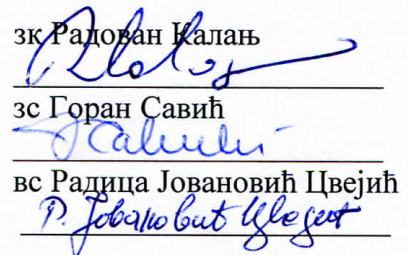 зк Радован Калањ
зс Горан Савић
вс Радица Јовановић Цвејић
Р. Јовановић Цвејић